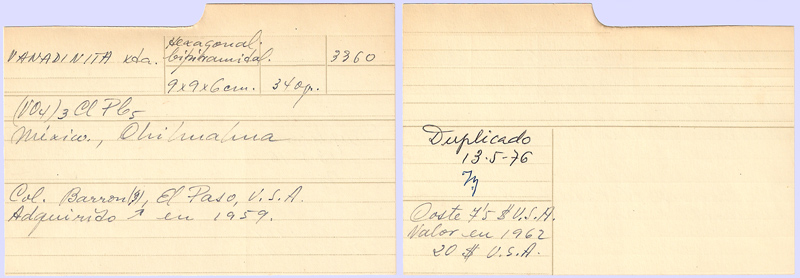 VANADINITA xda.
Hexagonal.
bipiramidal.
3360
9x9x6cm.
340gr.
(VO4)3 Cl Pb5
México., Chihuahua
Col. Barron(?), El Paso, U.S.A.
Adquirido en 1959.
Duplicado
13-5-76
Coste 7'5 $ U.S.A.
Valor en 1962
20 $ U.S.A.